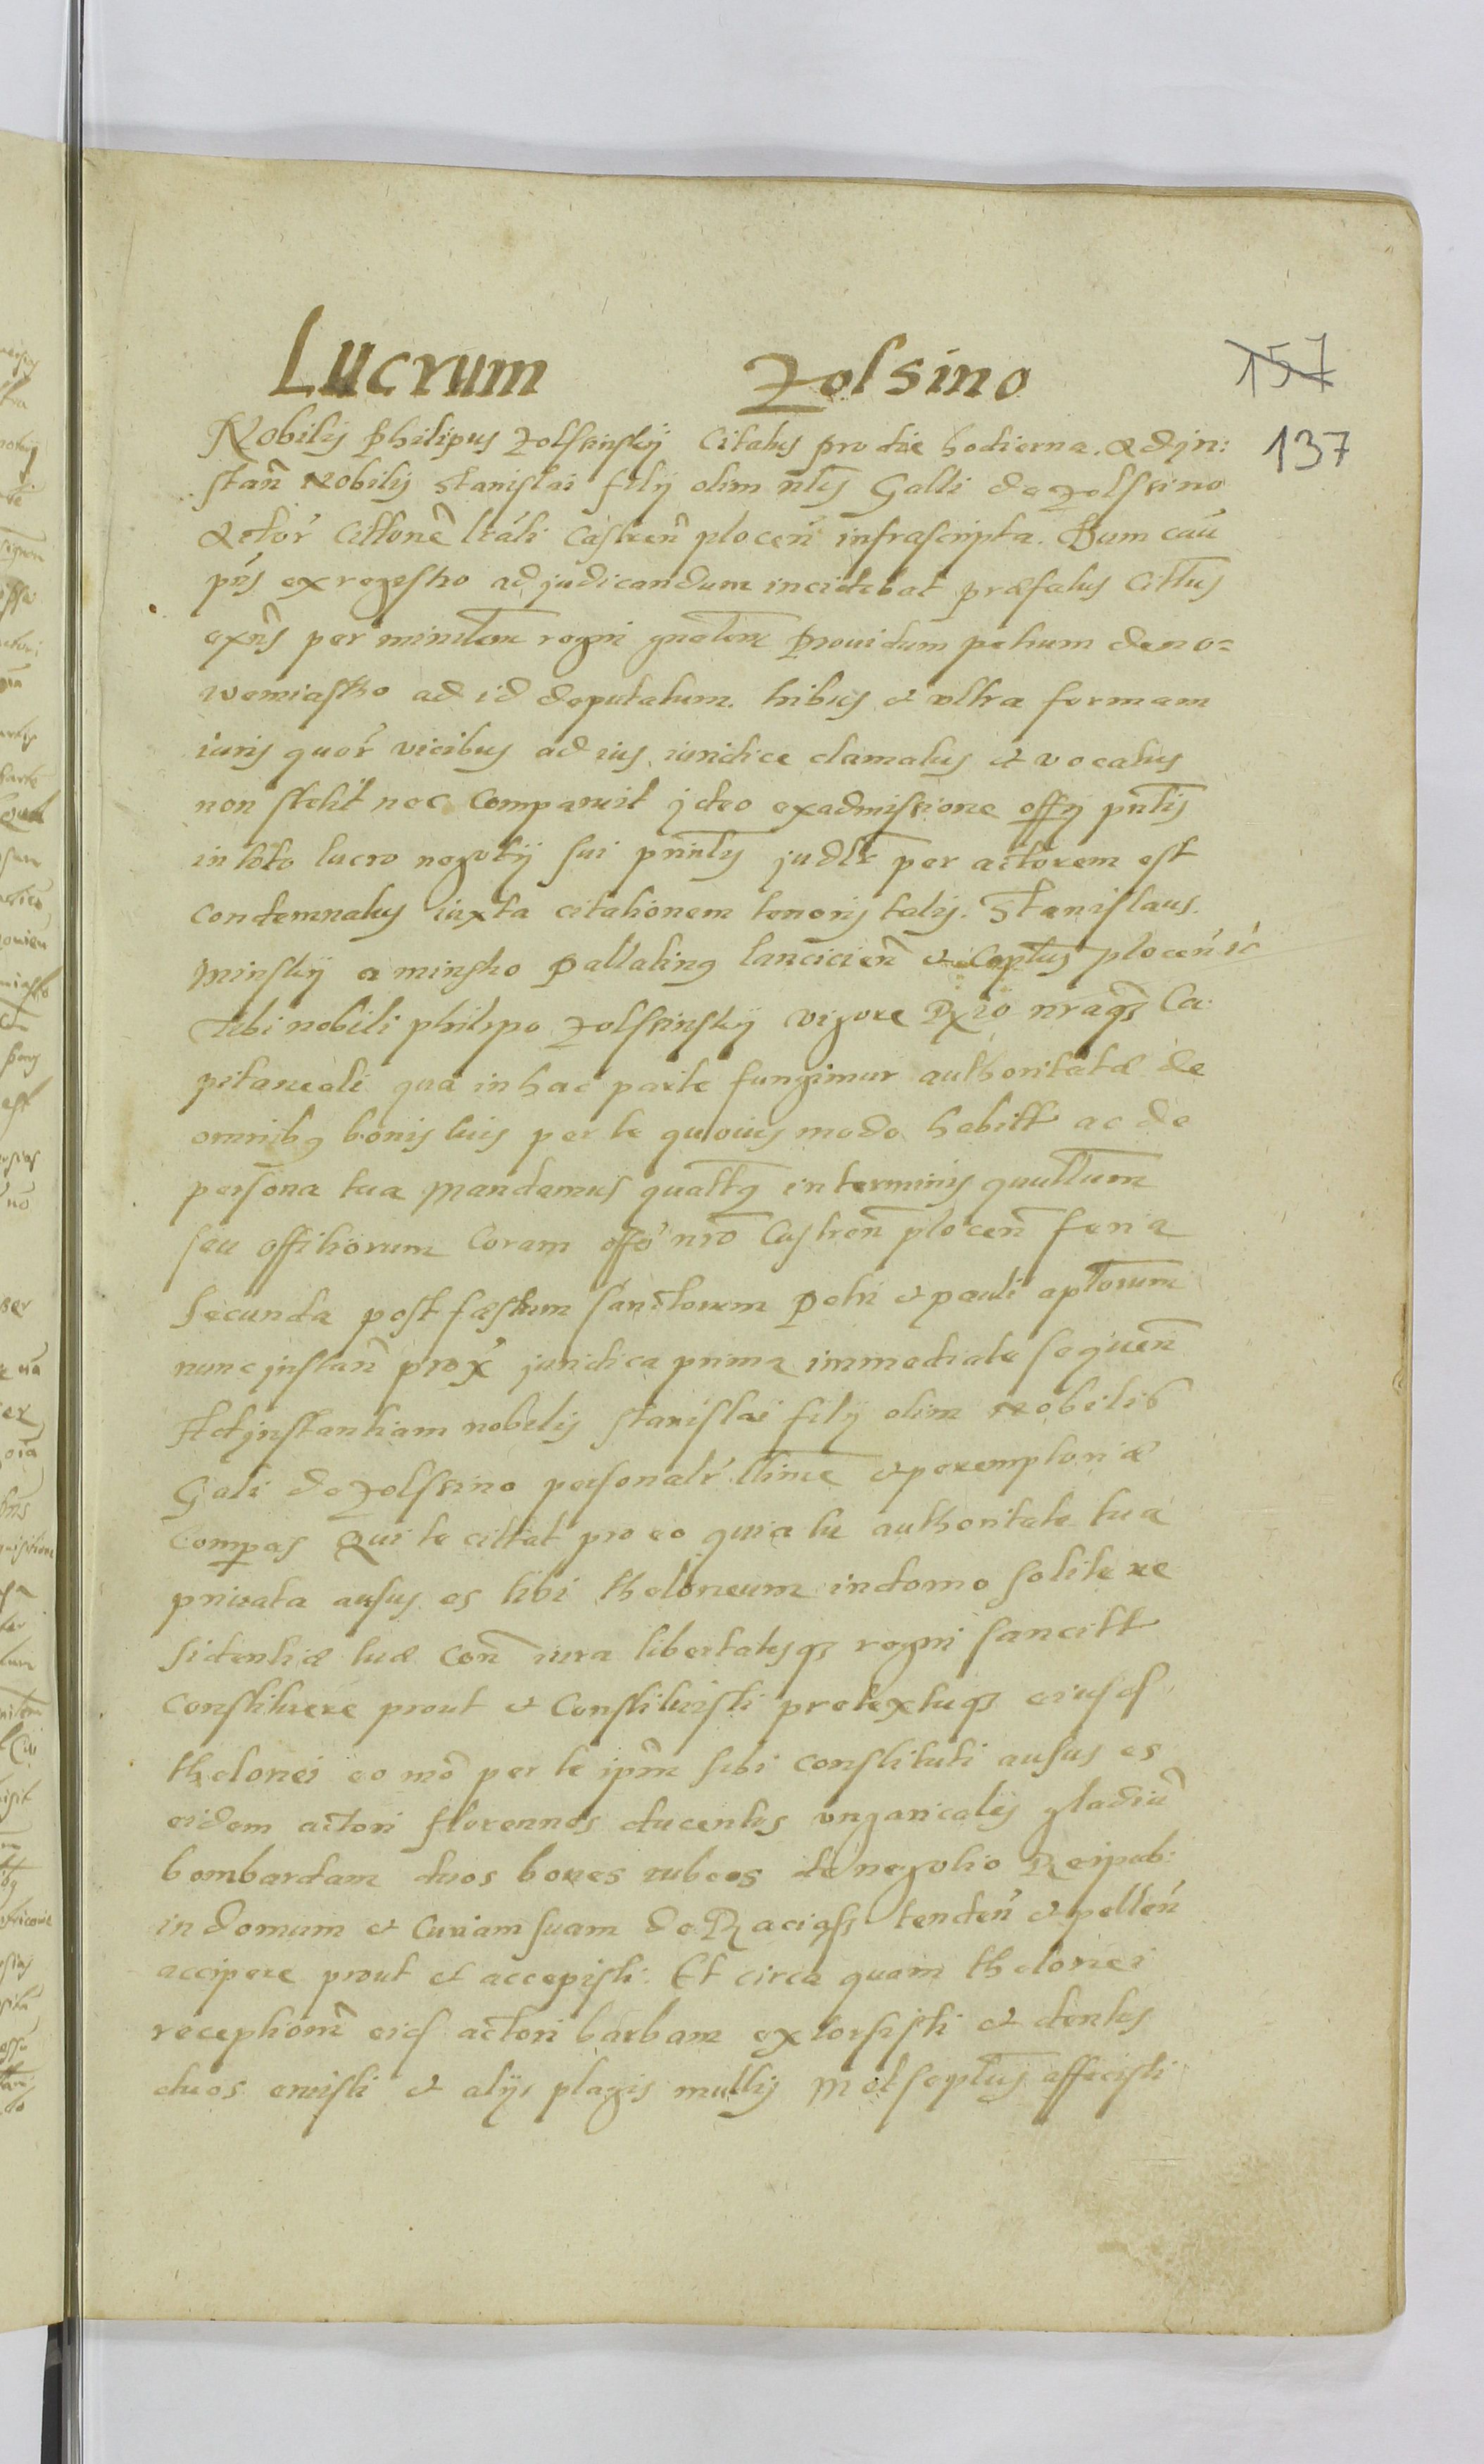 Lucrum Zolsino
157
137
Nobilis Philipus Zolssinskÿ Citatus pro die hodierna. Adjn:
stañ Nobilis Stanislai filÿ olim nlis Galli de Zolssino
Actoř Cittonē lr̃ali Castreñ ploceñ infrascripta. Dum cau͂
pñs ex regestro ad judicandum incidebat præfatus Cittus
exñs per ministem regni gnalem Prouidum petrum de no=
wemiastko ad id deputatum. tribus et vltra formam
iuris quoř vicibus ad ius iuridice clamatus et vocatus
non stetit nec Comparuit jdeo ex admissione offÿ pntis
in toto lucro negotÿ sui pñntis judlr per actorem est
Condemnatus iuxta citationem tenoris talis. Stanislaus.
Minskÿ a minsko Pallatinus lancicieñ et Captus ploceñ
Tibi nobili philipo Zolssinskÿ vigore nr̃aqȝ Ca:
pitaneali qua in hac parte fungimur authoritatæ de
omnibȝ bonis tuis per te quouis modo habitt ac de
persona tua Mandamus quattȝ in terminis quullum
seu offitiorum Coram offo nr̃o Castreñ ploceñ feria
secunda post fæstum sanctorum Petri et pauli aplorum
nunc jnstañ prox juridica prima immediate sequeñ
Adjnstantiam nobilis Stanislai filÿ olim Nobilis
Gali de Zolssino personalr̃ ttime et peremptoriæ
Compas Qui te cittat pro eo quia tu authoritate tua
priuata ausus es tibi theloneum in domo solite re
sidentiæ tuæ Coñ iura libertatesqȝ regni sancitt
Constituere prout et Constituisti pretextuqȝ eiusd
thelonei eo mō per te ipm̃ sibi constituti ausus es
eidem actori florennos ducentos vngaricalis gladiū
bombardam duos boues rubeos de negotio Reipub:
in domum et Curiam suam de Raciąss tendeñ et pelleñ
accipere prout et accepisti. Et circa quam thelonei
receptionē eid actori barbam extorsisti et dentes
duos eruisti et alijs plagis multis Metseptus affecisti